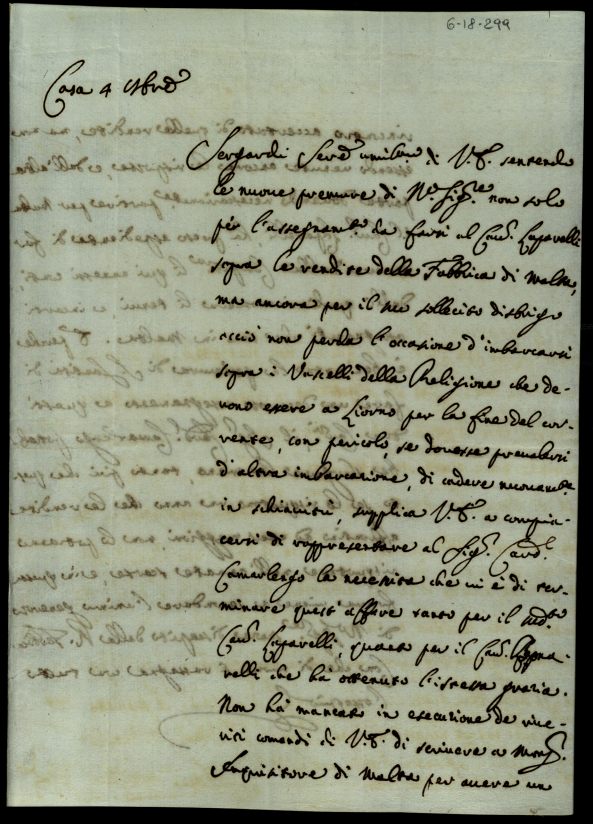 6-18-299
Casa 4 Xbre
Sergardi Serre umilmo di V.S. sentendo
le nuove premure di Nro Sigre non solo
per l'assegnamto da farsi al Cav. Caparelli
sopra le rendite della Fabbrica di Malta,
ma ancora per il suo sollecito disbrigo
acciò non perda l'occasione d'imbarcarsi
sopra i Vascelli della Religione che de-
vono essere a Livorno per la fine del cor-
rente, con pericolo, se dovesse prevalersi
d'altra imbarcazione, di cadere nuovamte
in schiavitù, supplica V.S. a compia-
cersi di rappresentare al Sigr Card.l
Camarlengo la necessità che vi è di ter-
minare quest'affare tanto per il sudto
Cav. Caparelli, quanto per il Cav.
relli che ha ottenuto l'istessa grazia.
Non ha mancato in esecuzione de rive-
riti comandi di V.S. di scrivere a Mons.
Inquisitore di Malta per avere un